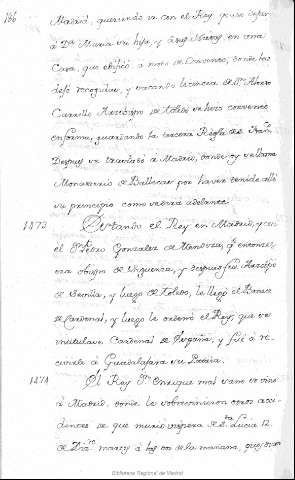 166
Madrid, queriendo va con el Rey, y uso dejar
à D.a Maria su hija, y à sus Nietas en una
Casa, que edificó a modo de Convento, donde las
dejó recogidas, y sacando licencia de D.n Alonso
Carrillo Arzobispo de Toledo se hizo convento
enforma, guardando la tercera Regla de S. Fran.co
Despues se trasladó a Madrid, donde oy se llama
Monasterio de Ballecas por haver tenido alli
su principio como vedrá adelante.
1473 Estando el Rey en Madrid, y con
él D.n Pedro Gonzalez de Mendoza, q.e entonces
era obispo de Siguenza, y despues fue Arzóbpō
de Sevilla, y luego de Toledo, le llegó el Capelo
de Cardenal, y luego le ordenó el Rey, que se
intitulase Cardenal de España, y fué à re-
civirle à Guadalajara su Patria.
1474 El Rey D.n Enrique mal sano se vino
à Madrid, donde le sobrevinieron otros acci-
dentes de que murió vispera de S.ta Lucia 12
de Diz.re martes à las dos de la mañana,
Biblioteca Regional de Madrid